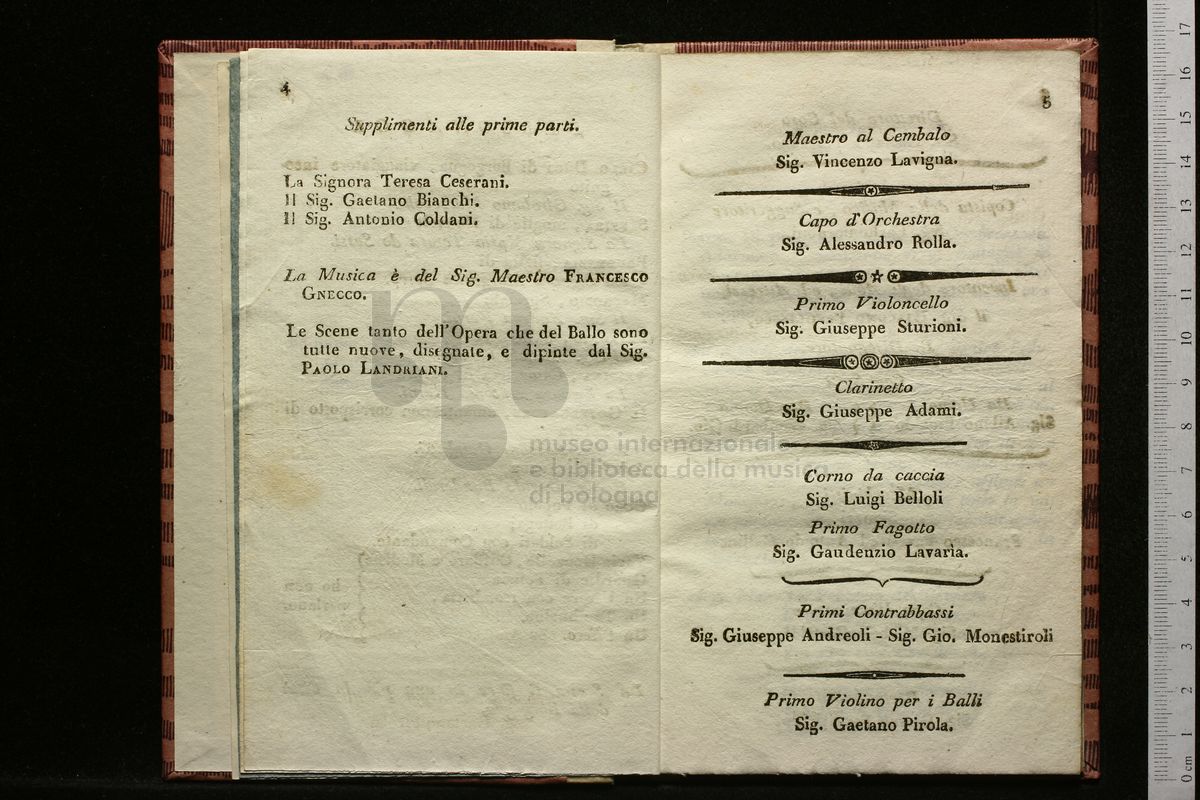 4
Supplimenti alle prime parti.
La Signora Teresa Ceserani.
Il Sig. Gaetano Bianchi.
Il Sig. Antonio Coldani.
La Musica è del Sig. Maestro FRANCESCO
GNECCO.
Le Scene tanto dell'Opera che del Ballo sono
tutte nuove, disegnate, e dipinte dal Sig.
PAOLO LANDRIANI.
5
Maestro al Cembalo
Sig. Vincenzo Lavigna.
Capo d'Orchestra
Sig. Alessandro Rolla.
Primo Violoncello
Sig. Giuseppe Sturioni.
Clarinetto
Sig. Giuseppe Adami.
Corno da caccia
Sig. Luigi Belloli
Primo Fagotto
Sig. Gaudenzio Lavaria.
Primi Contrabbassi
Sig. Giuseppe Andreoli - Sig. Gio. Monestiroli
Primo Violino per i Balli
Sig. Gaetano Pirola.
museo internazionale
e biblioteca della musica
di bologna
0 cm 1 2 3 4 5 6 7 8 9 10 11 12 13 14 15 16 17